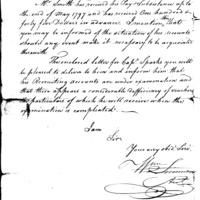 Mr. Smith has received his Pay & Subsistance up to
the end of May 1797 and has received One hundred &
forty five dollars in advance. I mention that
you may be informed of the situation of his accounts
should any event make it necessary to
therewith.
The enclosed letter for Capt. Sparks you will
be pleased to deliver to him and inform him that
his Recruiting accounts are under examination and
that there appears a considerable deficiency of vouchers
the particulars of which he will receive when the
examination is completed.
I am
Sir
Your very obt. Servt.
Wm Simmons